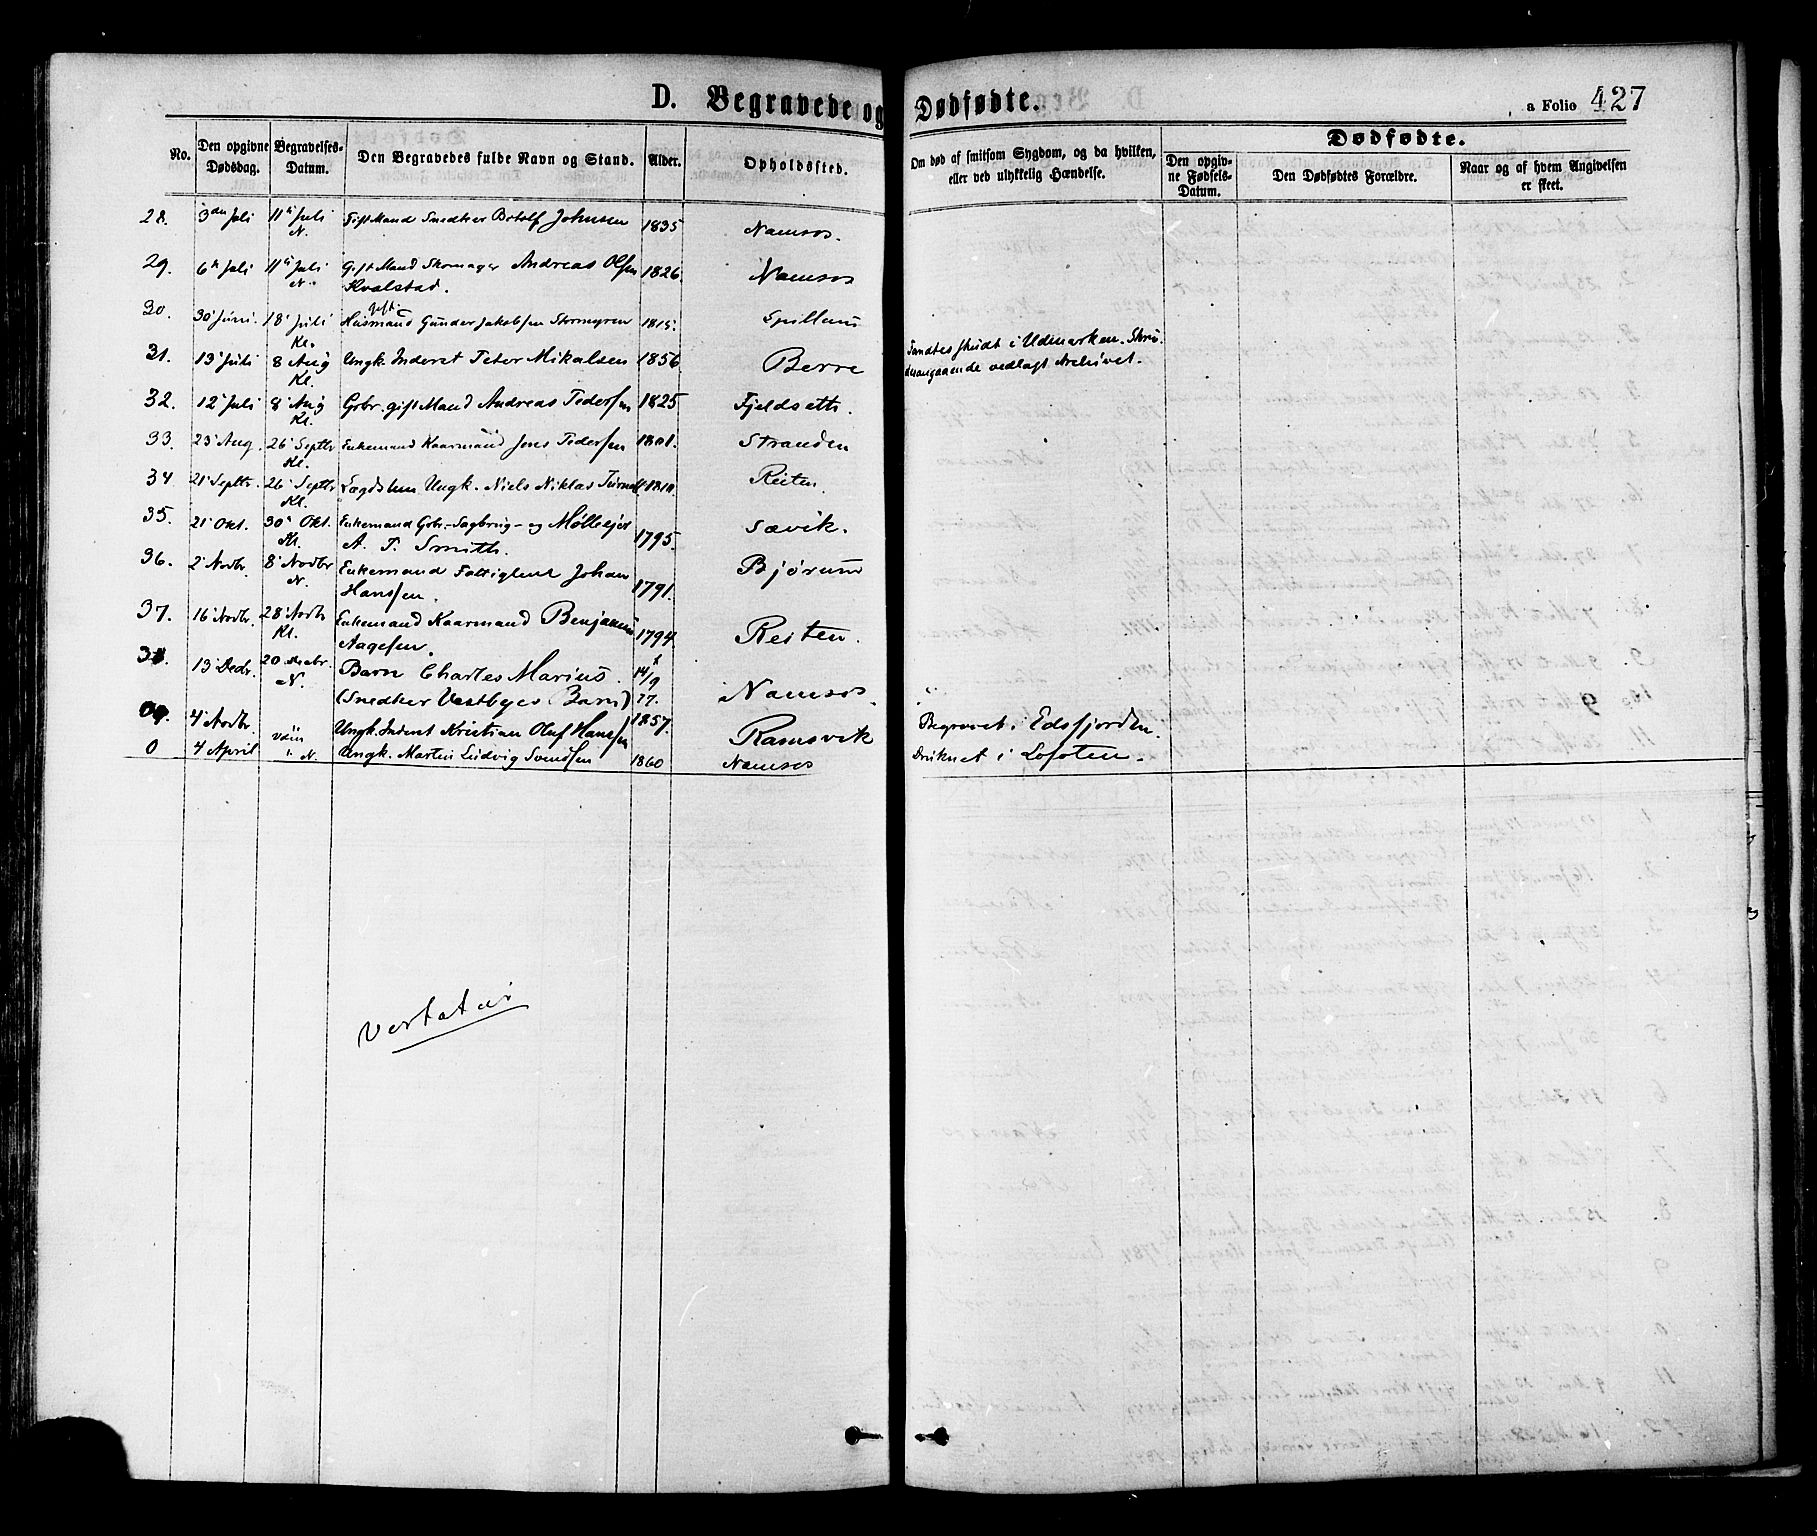 D. Begravede og Dødfødte.
a Folio 427
No.
Den opgivne Dødsdag.
Begravelses-Datum.
Den Begravedes fulde Navn og Stand.
Alder.
Opholdssted.
Om død af smitsom Sygdom, og da hvilken, eller ved ulykkelig Hændelse.
Dødfødte.
Den opgivne Fødsels-Datum.
Den Dødfødtes Forældre.
Naar og af hvem Angivelsen er skeet.
28. 3die Juli 11te Juli Gift Mand Snedker Botolf Johnsen 1835 Namsos.
N.
29. 6te Juli 11te Juli Gift Mand Skomager Andreas Olsen 1826 Namsos
N. Kvalstad.
gift
30. 30 Juni. 18 Juli Husmand Gunder Jakobsen Stormyren 1815. Spillum
Kl.
31. 13 Juli 8 Aug Ungk. Inderst Peter Mikalsen 1856 Berre Fandtes skudt i Udmarken.
Kl. vedlagt Archivet.
32. 12 Juli 8 Aug Gbr. gift Mand Andreas Pedersen 1825 Fjeldseth.
Kl.
33. 23 Aug. 26 Septbr Enkemand Kaarmand Jens Pedersen 1801. Stranden
Kl.
34 21 Septbr. 26 Septbr Lægdslem Ungk. Niels Niklas 1810. Reiten
Kl.
35. 21 Okt. 30 Okt. Enkemand Gbr. Sagbrug- og Mølleejer 1795. Sævik.
Kl. A. T. Smith.
36. 2 Novbr. 8 Novbr Enkemand Fattiglem Johan 1791. Bjørum
N. Hanssen.
37. 16 Novbr. 28 Novbr Enkemand Kaarmand Benjamin 1794. Reiten.
Kl. Aagesen.
38. 13 Decbr. 20 Decbr. Barn Charles Marius. 14/9
N. (Snedker Vestbyes Barn) 77. Namsos.
09. 4 Novbr. Ungk. Inderst Kristian Oluf Hanssen 1857. Ramsvik Begravet i Edsfjorden.
0 4 April i N. Ungk. Martin Ludvig Svendsen 1860 Namsos Druknet i Lofoten.
Vertatur